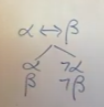 α ↔ β
α ¬α
β ¬β